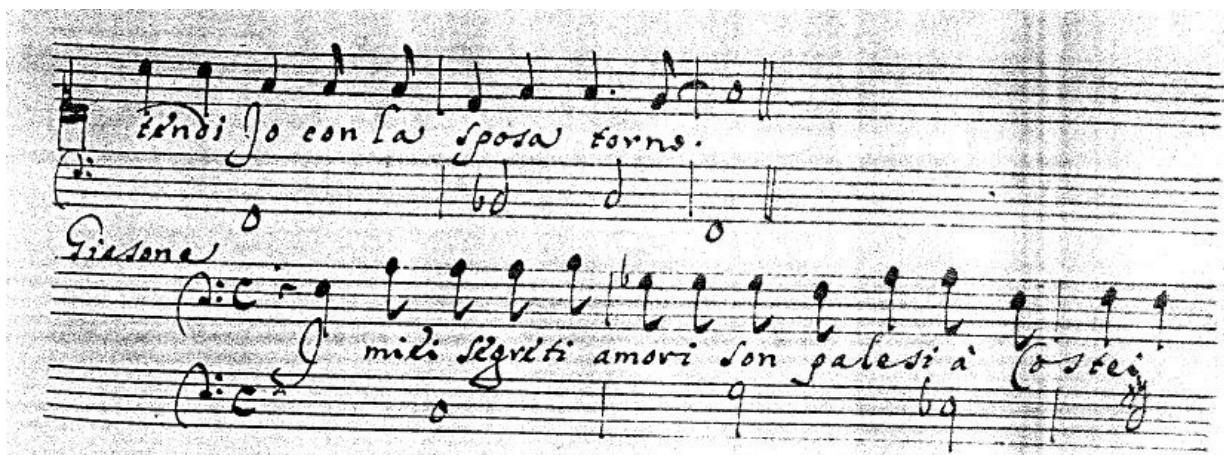 tendi Jo con la sposa torno.
Giasone
J miei segreti amori son palesi à Costei